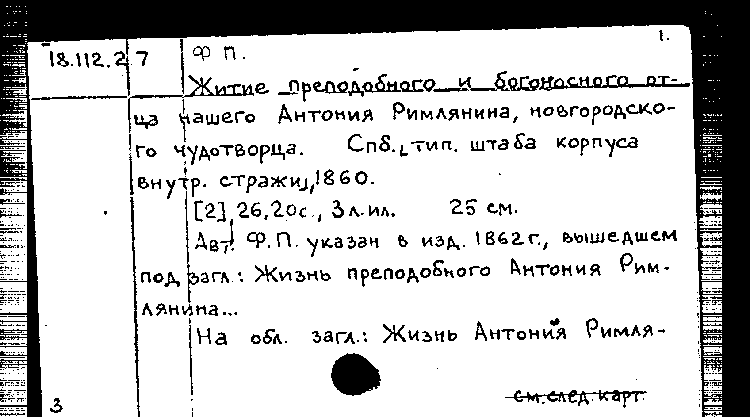 1.
18.112.2 7 Ф П.
Житие преподобного и богоносного от-
ца нашего Антония Римлянина, новгородско-
го чудотворца. Спб., тип. штаба корпуса
внутр. стражи, 1860.
[2], 26, 20 с., 3 л. ил. 25 см.
Авт. Ф.П. указан в изд. 1862 г., вышедшем
под загл.: Жизнь преподобного Антония Рим-
лянина...
На обл. загл.: Жизнь Антония Римля-
3 см. след. карт.